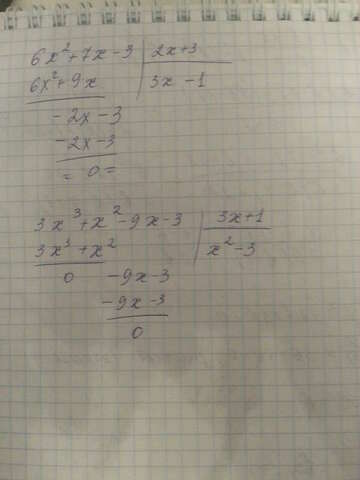 6x²+7x-3 | 2x+3
6x²+9x | 3x-1
-2x-3
-2x-3
= 0 =
3x³+x²-9x-3 | 3x+1
3x³+x² | x²-3
0 -9x-3
-9x-3
0